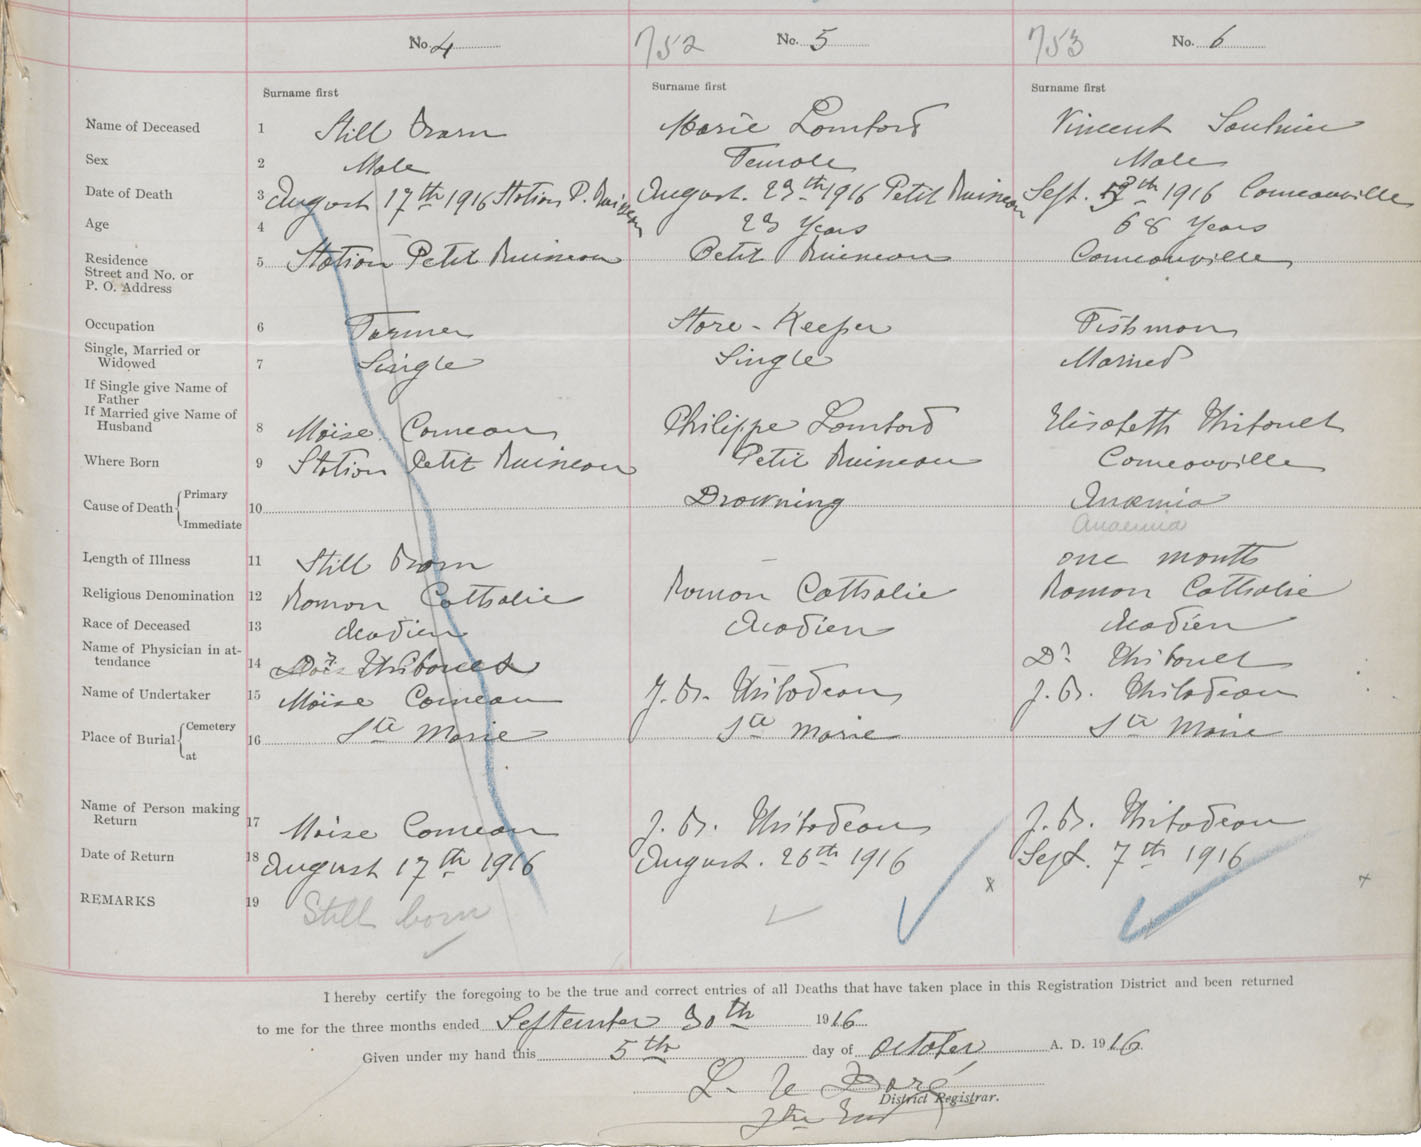 No. 4 752 No. 5 753 No. 6
Surname first Surname first Surname first
Name of Deceased 1 Still Born Marie Lomford Vincent Saulnier
Sex 2 Male Female Male
Date of Death 3 August 17th 1916 Station P. Ruisseau August. 23th 1916 Petit Ruisseau Sept. 5th 1916 Comeauville
Age 4 23 Years 68 Years
Residence
Street and No. or
P. O. Address 5 Station Petit Ruisseau Petit Ruisseau Comeauville
Occupation 6 Farmer Store-Keeper Fishman
Single, Married or
Widowed 7 Single Single Married
If Single give Name of
Father
If Married give Name of
Husband 8 Moise Comeau Philippe Lomford Elisabeth Thibouet
Where Born 9 Station Petit Ruisseau Petit Ruisseau Comeauville
Cause of Death { Primary Immediate 10 Drowning Anæmia
Anaemia
Length of Illness 11 Still born — one month
Religious Denomination 12 Roman Catholic Roman Catholic Roman Catholic
Race of Deceased 13 Acadien Acadien Acadien
Name of Physician in at-
tendance 14 Thibouet Dr Thibouet
Name of Undertaker 15 Moise Comeau J. B. Thibodeau J. B. Thibodeau
Place of Burial { Cemetery at 16 Ste Marie Ste Marie Ste Marie
Name of Person making
Return 17 Moise Comeau J. B. Thibodeau J. B. Thibodeau
Date of Return 18 August 17th 1916 August. 26th 1916 Sept. 7th 1916
REMARKS 19 Still born
I hereby certify the foregoing to be the true and correct entries of all Deaths that have taken place in this Registration District and been returned
to me for the three months ended September 30th 1916
Given under my hand this 5th day of October A. D. 1916
L. U Doré
District Registrar.